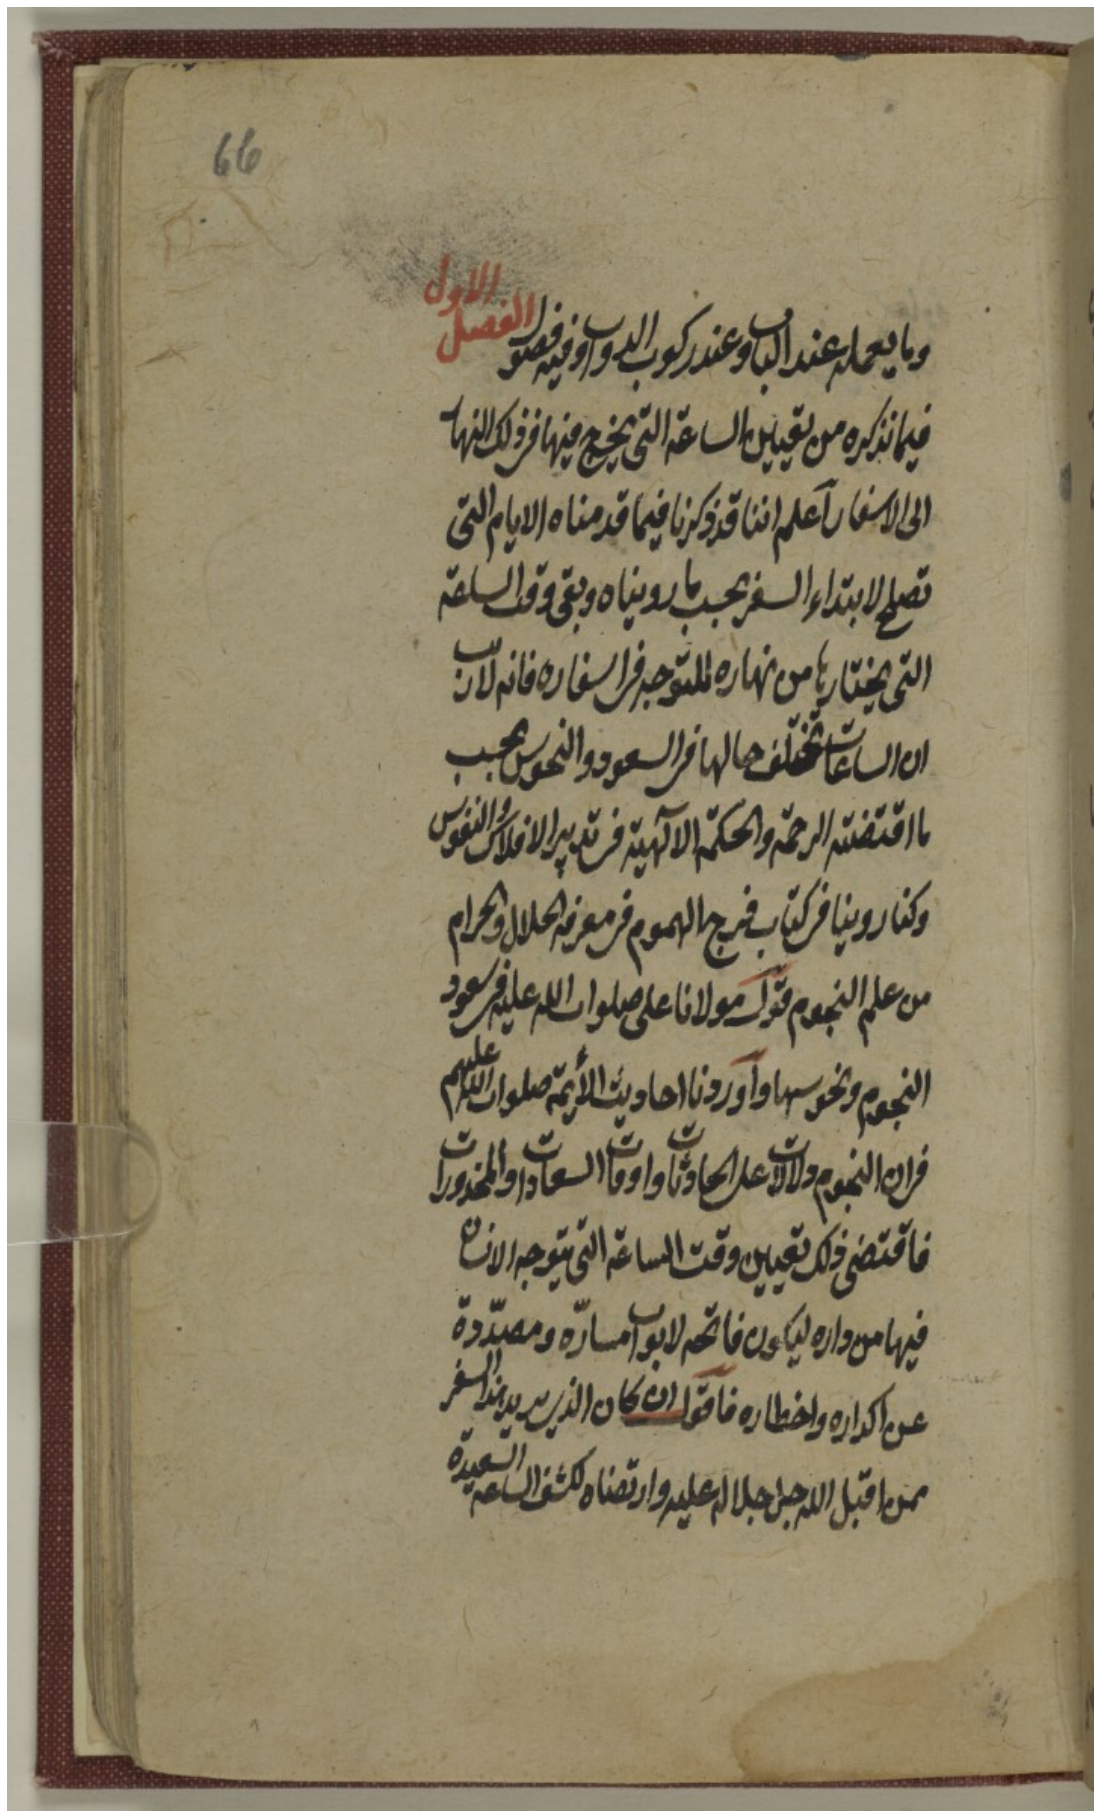 66
وما يعمله عند الباب وعند ركوب الدواب وفيه فصول الفصل الاول
فيما نذكره من تعيين الساعة التى يخرج فيها فى ذلك النهار
الى الاسفار آعلم اننا قد ذكرنا فيما قدمناه الايام التى
تصلح لابتداء السفر بحسب ما رويناه وبقى وقت الساعة
التى يختارها من نهاره للتوجه فى اسفاره فانه لا ريب
ان الساعات تختلف حالها فى السعود والنحوس بحسب
ما اقتضته الرحمة والحكمة الالٓهية فى تدبير الافلاك والنفوس
وكنا روينا فى كتاب فرج الهموم فى معرفة الحلال والحرام
من علم النجوم قول مولانا على صلوات الله عليه فى سعود
النجوم ونحوسها وآوردنا احاديث الأيمة صلوات الله عليهم
فى ان النجوم دلالات على الحادثات واوقات السعادات والمحذورات
فاقتضى ذلك تعيين وقت الساعة التى يتوجه الانسان
فيها من داره ليكون فاتحه لابواب مسارّه ومصدّدة
عن اكداره واخطاره فآقول ان كان الذى يريد هذا السفر
ممن اقبل الله جل جلاله عليه وارتضاه لكشف الساعه السعيدة